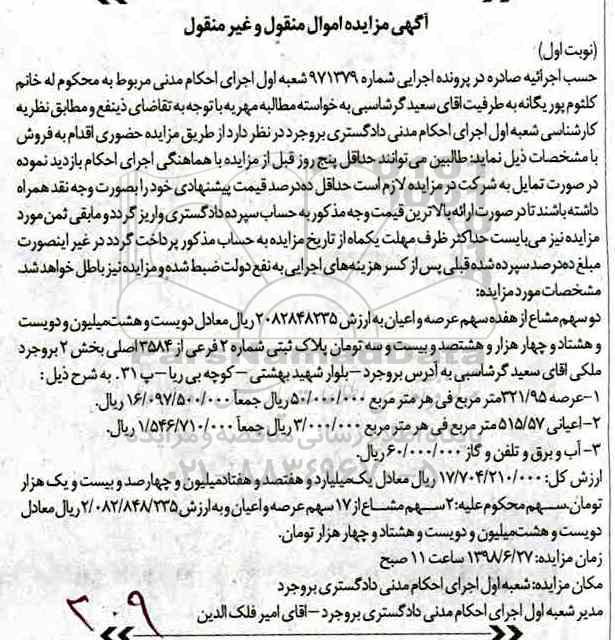 آگهی مزایده اموال منقول و غیر منقول
(نوبت اول)
حسب اجرائیه صادره در پرونده اجرایی شماره ۹۷۱۳۷۹ شعبه اول اجرای احکام مدنی مربوط به محکوم له خانم
کلثوم پور یگانه به طرفیت اقای سعید گرشاسبی به خواسته مطالبه مهریه با توجه به تقاضای ذینفع و مطابق نظریه
کارشناسی شعبه اول اجرای احکام مدنی دادگستری بروجرد در نظر دارد از طریق مزایده حضوری اقدام به فروش
با مشخصات ذیل نماید: طالبین می توانند حداقل پنج روز قبل از مزایده با هماهنگی اجرای احکام بازدید نموده
در صورت تمایل به شرکت در مزایده لازم است حداقل ده درصد قیمت پیشنهادی خود را بصورت وجه نقد همراه
داشته باشند تا در صورت ارائه بالاترین قیمت وجه مذکور به حساب سپرده دادگستری واریز گردد و مابقی ثمن مورد
مزایده نیز می بایست حداکثر ظرف مهلت یکماه از تاریخ مزایده به حساب مذکور پرداخت گردد در غیر اینصورت
مبلغ ده درصد سپرده شده قبلی پس از کسر هزینه های اجرایی به نفع دولت ضبط شده و مزایده نیز باطل خواهد شد.
مشخصات مورد مزایده:
دو سهم مشاع از هفده سهم عرصه و اعیان به ارزش ۲۰۸۲۸۴۸۲۳۵ ریال معادل دویست و هشت میلیون و دویست
و هشتاد و چهار هزار و هشتصد و بیست و سه تومان پلاک ثبتی شماره ۲ فرعی از ۳۵۸۴ اصلی بخش ۲ بروجرد
ملکی اقای سعید گرشاسبی به آدرس بروجرد – بلوار شهید بهشتی – کوچه بی ریا – پ ۳۱. به شرح ذیل:
۱– عرصه ۳۲۱/۹۵ متر مربع فی هر متر مربع ۵۰/۰۰۰/۰۰۰ ریال جمعاً ۱۶/۰۹۷/۵۰۰/۰۰۰ ریال.
۲– اعیانی ۵۱۵/۵۷ متر مربع فی هر متر مربع ۳/۰۰۰/۰۰۰ ریال جمعاً ۱/۵۴۶/۷۱۰/۰۰۰ ریال.
۳– آب و برق و تلفن و گاز ۶۰/۰۰۰/۰۰۰ ریال.
ارزش کل: ۱۷/۷۰۴/۲۱۰/۰۰۰ ریال معادل یک میلیارد و هفتصد و هفتاد میلیون و چهارصد و بیست و یک هزار
تومان. سهم محکوم علیه: ۲ سهم مشاع از ۱۷ سهم عرصه و اعیان و به ارزش ۲/۰۸۲/۸۴۸/۲۳۵ ریال معادل
دویست و هشت میلیون و دویست و هشتاد و چهار هزار تومان.
زمان مزایده: ۱۳۹۸/۶/۲۷ ساعت ۱۱ صبح
مکان مزایده: شعبه اول اجرای احکام مدنی دادگستری بروجرد
مدیر شعبه اول اجرای احکام مدنی دادگستری بروجرد – اقای امیر فلک الدین
۲۰۹